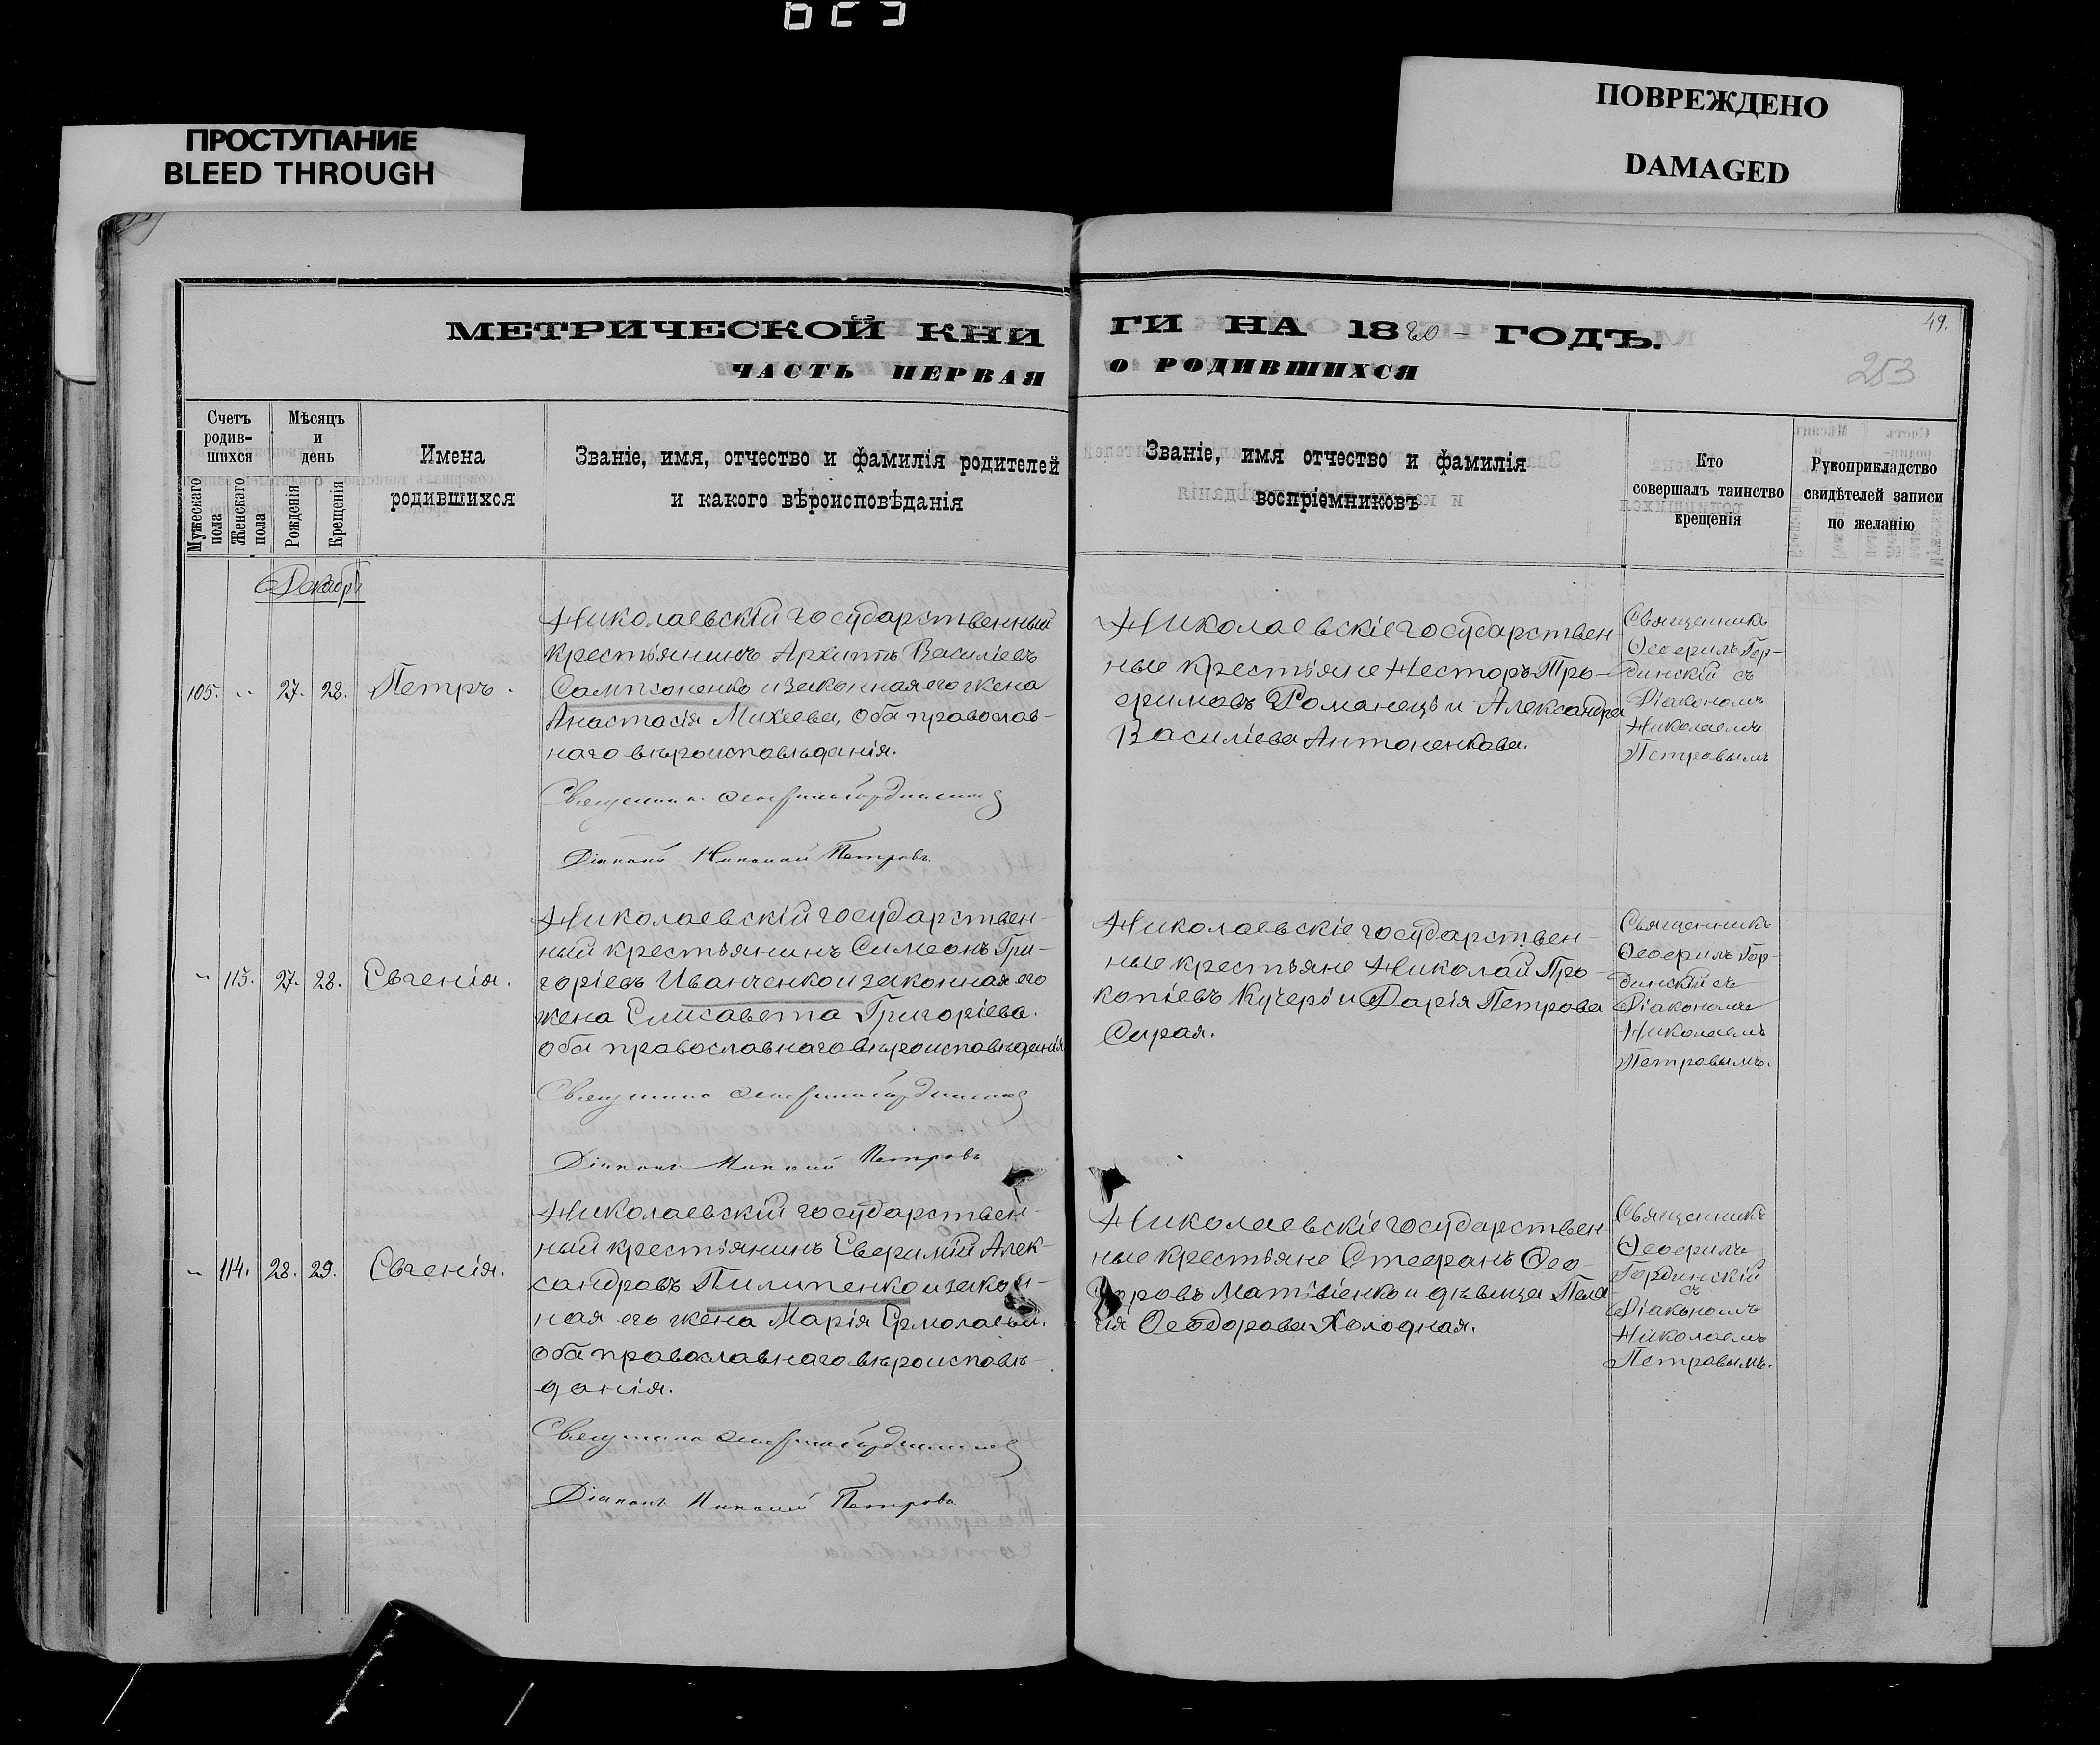 ПРОСТУПАНИЕ
BLEED THROUGH
ПОВРЕЖДЕНО
DAMAGED
МЕТРИЧЕСКОЙ КНИ
ГИ НА 1880 ГОДЪ.
49.
ЧАСТЬ ПЕРВАЯ
О РОДИВШИХСЯ
253
Счетъ
родив-
шихся
Мужескаго
пола
Женскаго
пола
Мѣсяцъ
и
день
Рожденія
Крещенія
Имена
родившихся
Званіе, имя, отчество и фамилія родителей
и какого вѣроисповѣданія
Званіе, имя отчество и фамилія
воспріемниковъ
Кто
совершалъ таинство
крещенія
Рукоприкладство
свидѣтелей записи
по желанію
Декабрь
105. 27. 28. Петръ.
Николаевскій государственный
крестьянинъ Архиппъ Василіевъ
Сампсоненко и законная его жена
Анастасія Михеева, оба православ-
наго вѣроисповѣданія.
Священникъ Ѳеофилъ Гординскій
Діаконъ Николай Петровъ
Николаевскіе государствен-
ные крестьяне Несторъ Тро-
фимовъ Романецъ и Александра
Василіева Антоненкова.
Священникъ
Ѳеофилъ Гор-
динскій съ
Діакономъ
Николаемъ
Петровымъ
113. 27. 28. Евгенія.
Николаевскій государствен-
ный крестьянинъ Симеонъ Гри-
горіевъ Иванченко и законная его
жена Елисавета Григоріева.
оба православнаго вѣроисповѣданія
Священникъ Ѳеофилъ Гординскій
Діаконъ Николай Петровъ
Николаевскіе государствен-
ные крестьяне Николай Про-
копіевъ Кучеръ и Дарія Петрова
Сирая.
Священникъ
Ѳеофилъ Гор-
динскій съ
Діакономъ
Николаемъ
Петровымъ.
114. 28. 29. Евгенія.
Николаевскій государствен-
ный крестьянинъ Евфимій Алек-
сандровъ Пилипенко и закон-
ная его жена Марія Ермолаева.
оба православнаго вѣроисповѣ-
данія.
Священникъ Ѳеофилъ Гординскій
Діаконъ Николай Петровъ
Николаевскіе государствен-
ные крестьяне Стефанъ Ѳео-
доровъ Матвіенко и дѣвица Пела
гія Ѳеодорова Холодная.
Священникъ
Ѳеофилъ
Гординскій
съ
Діакономъ
Николаемъ
Петровымъ.